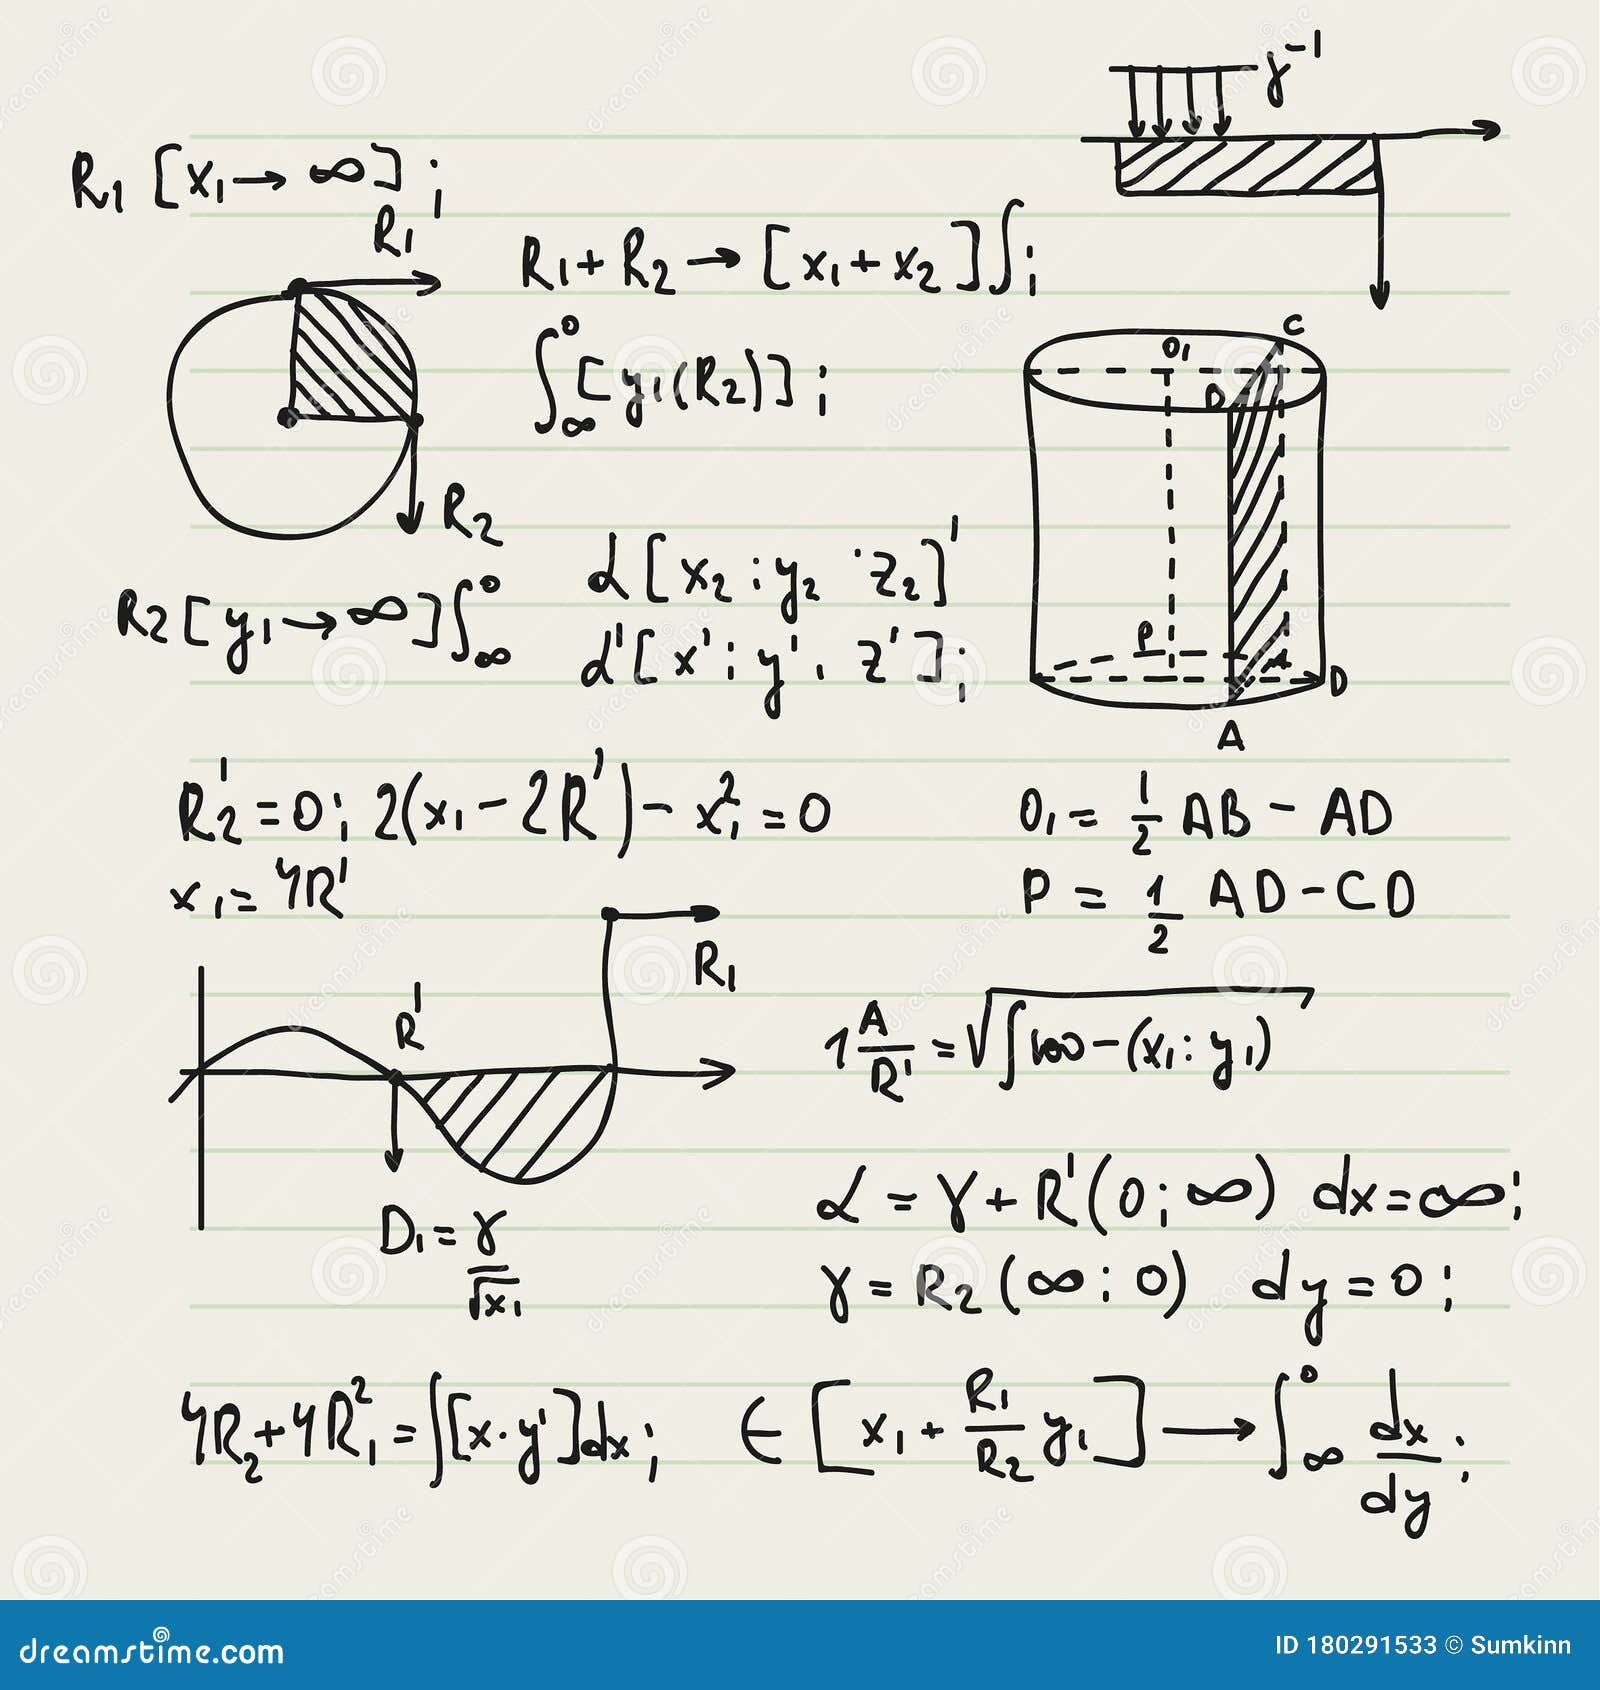 γ⁻¹
R₁ [x₁→ ∞] ;
R₁
R₁+ R₂ → [x₁+ x₂]∫;
∫∞⁰ [y₁(R₂)] ;
C
O₁
D
R₂
R₂[y₁→∞]∫∞⁰
α[x₂ : y₂ · z₂]'
α'[x' : y', z'];
P
D
A
R'₂=0; 2(x₁- 2R')- x₁²=0
x₁= 4R'
O₁= 1/2 AB - AD
P = 1/2 AD-CD
R₁
R'
1 A/R' = √∫100-(x₁: y₁)
D₁= γ/√x₁
α = γ+ R'(0; ∞) dx=∞;
γ= R₂(∞: 0) dy=0;
4R₂+4R₁²=∫[x·y']dx;
∈ [x₁+ R₁/R₂ y₁] → ∫∞⁰ dx/dy ;
dreamstime.com
ID 180291533 © Sumkinn